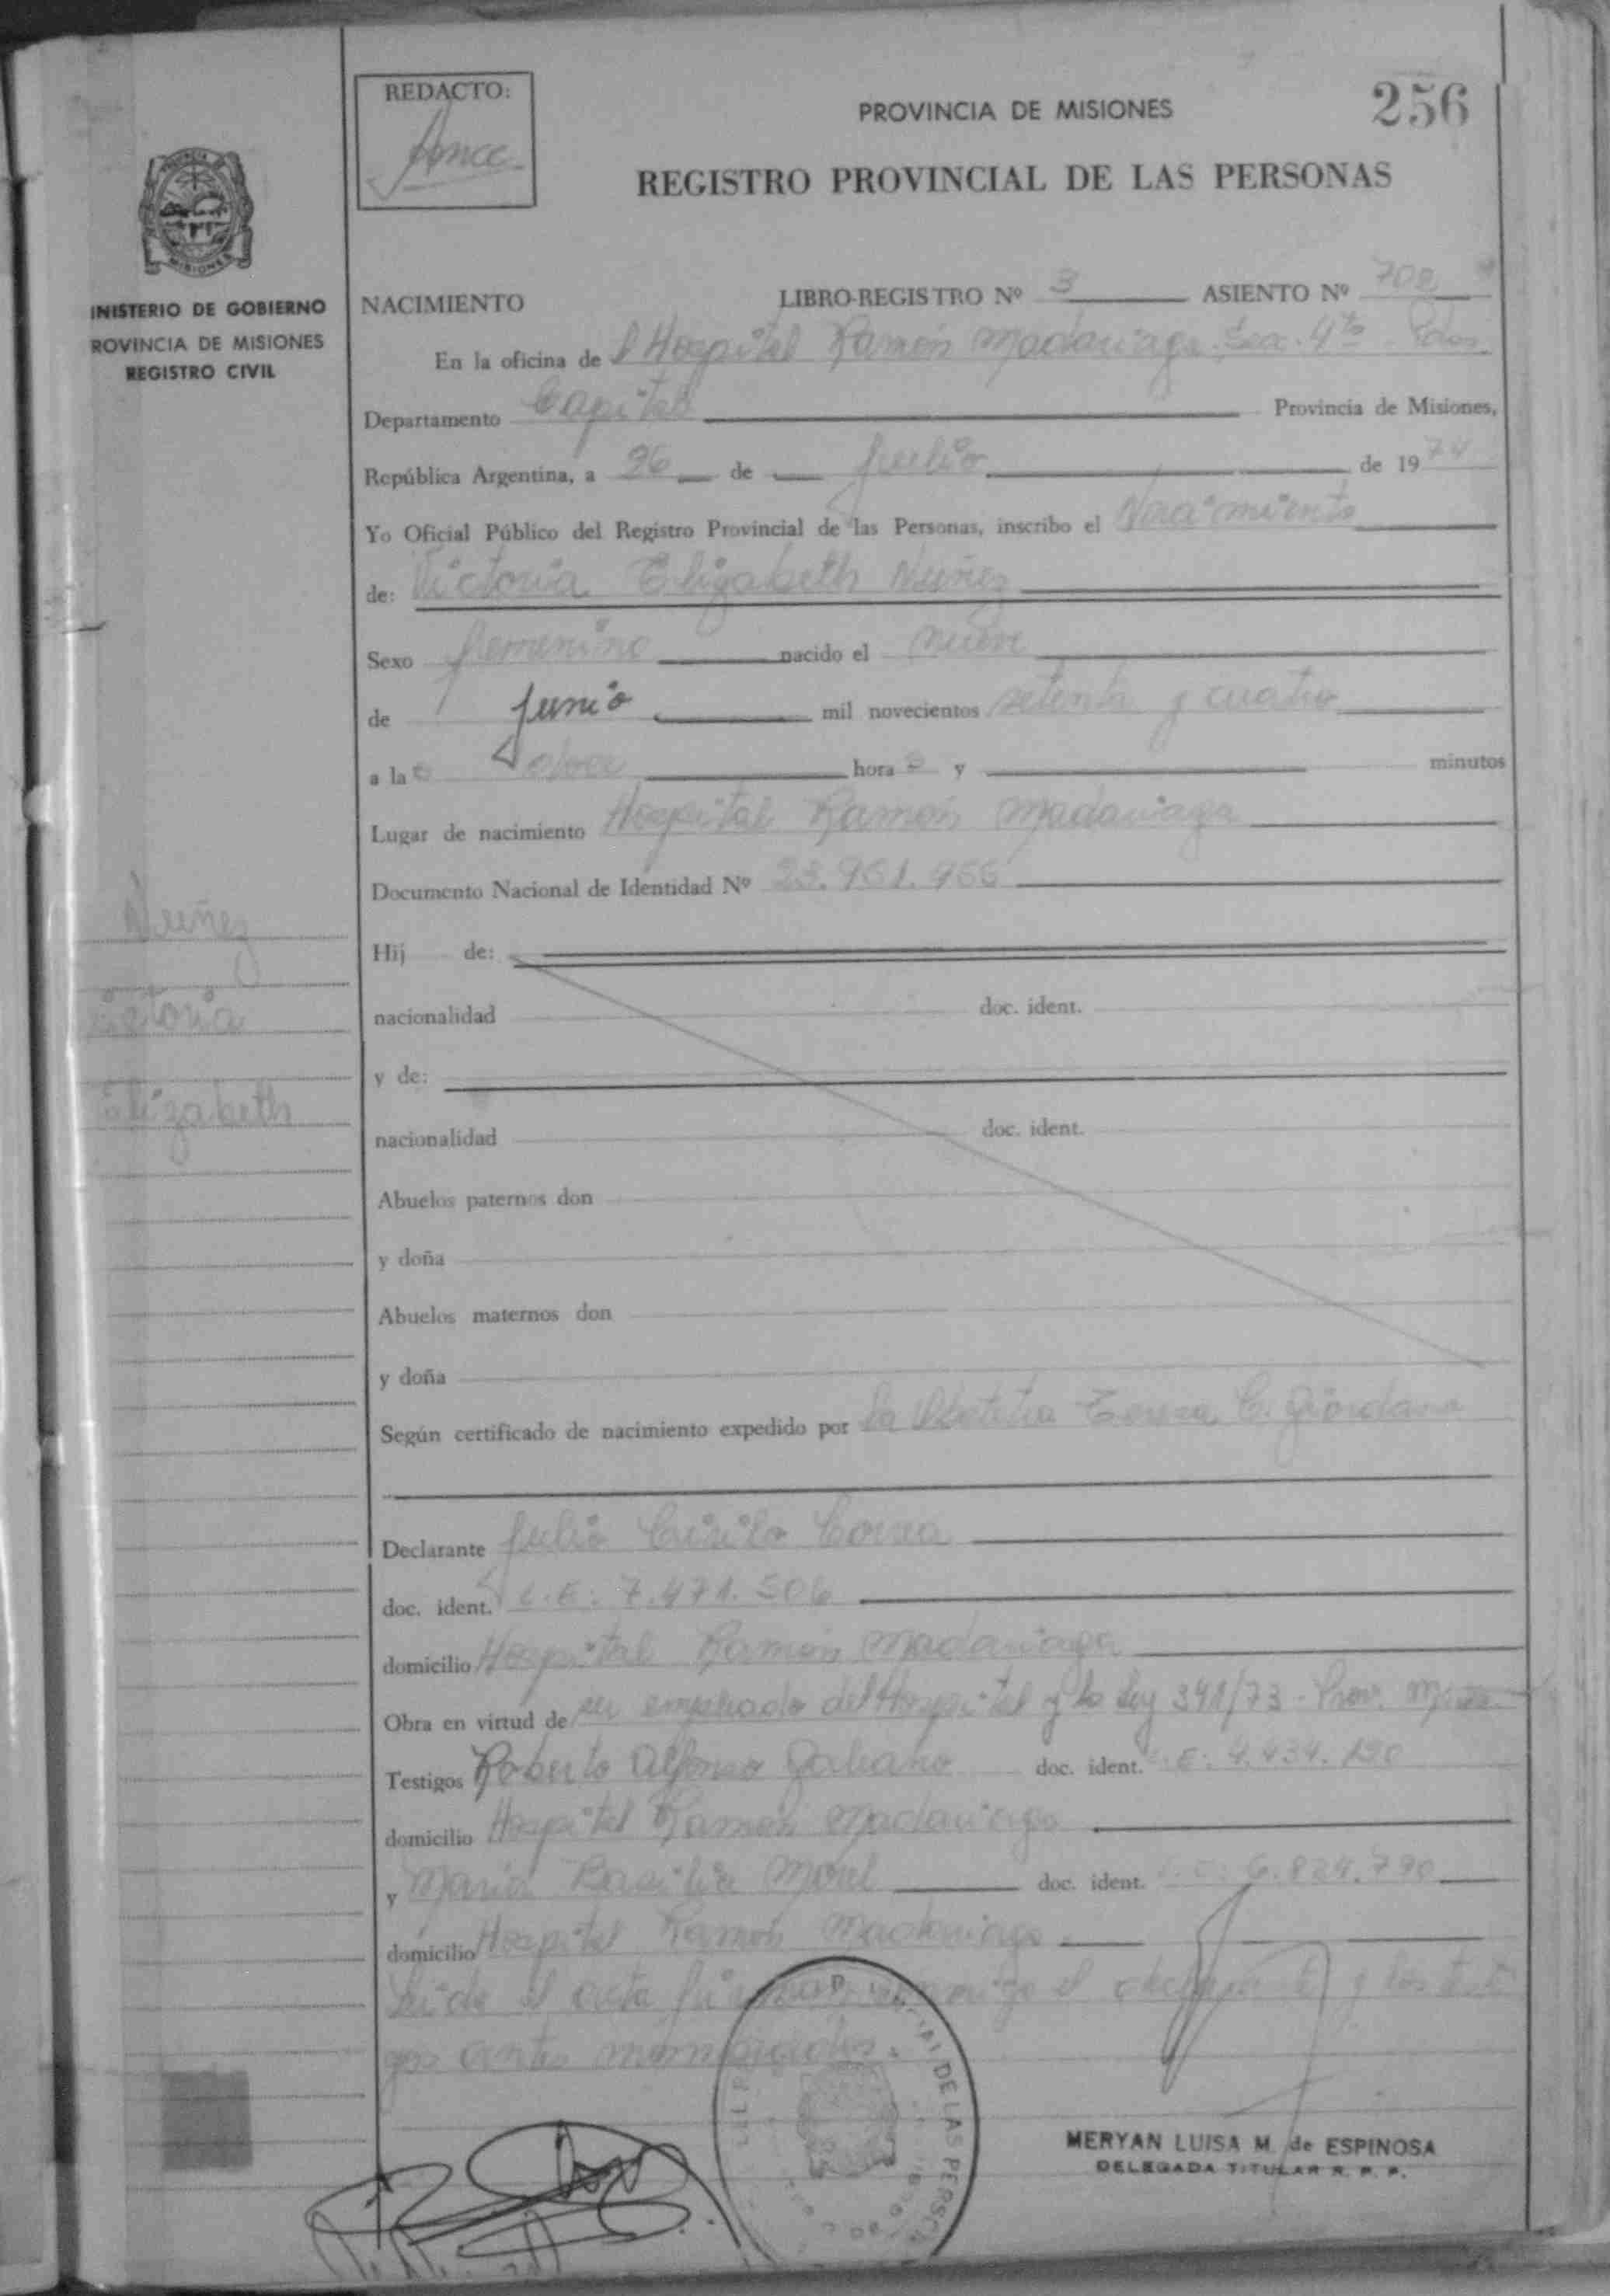 REDACTO:
256
PROVINCIA DE MISIONES
REGISTRO PROVINCIAL DE LAS PERSONAS
MISIONES
INISTERIO DE GOBIERNO
ROVINCIA DE MISIONES
REGISTRO CIVIL
NACIMIENTO LIBRO-REGISTRO Nº 3 ASIENTO Nº 708
En la oficina de l Hospital Ramón Madariaga. Sec. 4ta
Departamento Capital Provincia de Misiones,
República Argentina, a 26 de Julio de 1974
Yo Oficial Público del Registro Provincial de las Personas, inscribo el Nacimiento
de: Victoria Elizabeth Nuñez
Sexo femenino nacido el nueve
de Junio mil novecientos setenta y cuatro
a la s hora s y minutos
Lugar de nacimiento Hospital Ramón Madariaga
Documento Nacional de Identidad Nº 23.961.966
Nuñez
ictoria
Elizabeth
Hij de:
nacionalidad doc. ident.
y de:
nacionalidad doc. ident.
Abuelos paternos don
y doña
Abuelos maternos don
y doña
Según certificado de nacimiento expedido por la Obstetra Teresa C. Giordano
Declarante Julio Cirilo Correa
doc. ident. L.E: 7.471.506
domicilio Hospital Ramón Madariaga
Obra en virtud de ser empleado del Hospital y la Ley 341/73 - Prov. Mnes.
Testigos Roberto Alfonso Galiano doc. ident. L.E: 4.434.190
domicilio Hospital Ramón Madariaga
y Maria Basilia Morel doc. ident. L.C: 6.824.790
domicilio Hospital Ramón Madariaga
Leida el acta firman conmigo el declarante y los testi
gos antes mencionados.
MERYAN LUISA M. de ESPINOSA
DELEGADA TITULAR R. P. P.